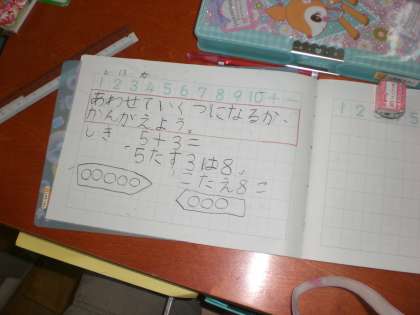 1 2 3 4 5 6 7 8 9 10 + -
あわせていくつになるか、
かんがえよう。
しき 5+3=
5たす3は8。
こたえ8こ
1 2
5